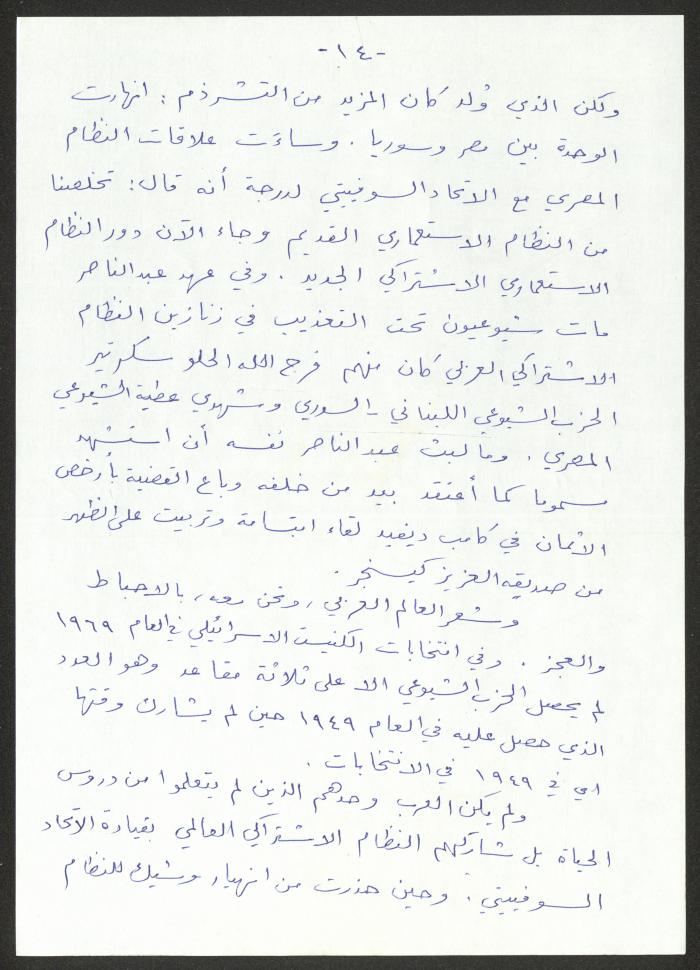 -١٤-
ولكن الذي وُلد كان المزيد من التشرذم : انهارت
الوحدة بين مصر وسوريا . وساءَت علاقات النظام
المصري مع الاتحاد السوفييتي لدرجة أنه قال: تخلصنا
من النظام الاستعماري القديم وجاء الآن دور النظام
الاستعماري الاشتراكي الجديد . وفي عهد عبدالناصر
مات شيوعيون تحت التعذيب في زنازين النظام
الاشتراكي العربي كان منهم فرج الله الحلو سكرتير
الحزب الشيوعي اللبناني - السوري وشهدي عطية الشيوعي
المصري . وما لبث عبدالناصر نفسه أن استشهد
مسموما كما أعتقد بيد من خلفه وباع القضية بأرخص
الأثمان في كامب ديفيد لقاء ابتسامة وتربيت على الظهر
من صديقه العزيز كيسنجر .
وشعر العالم العربي ، ونحن معه ، بالاحباط
والعجز . وفي انتخابات الكنيست الاسرائيلي في العام ١٩٦٩
لم يحصل الحزب الشيوعي الا على ثلاثة مقاعد وهو العدد
الذي حصل عليه في العام ١٩٤٩ حين لم يشارك وقتها
اي في ١٩٤٩ في الانتخابات .
ولم يكن العرب وحدهم الذين لم يتعلموا من دروس
الحياة بل شاركهم النظام الاشتراكي العالمي بقيادة الاتحاد
السوفييتي . وحين حذرت من انهيار وشيك للنظام